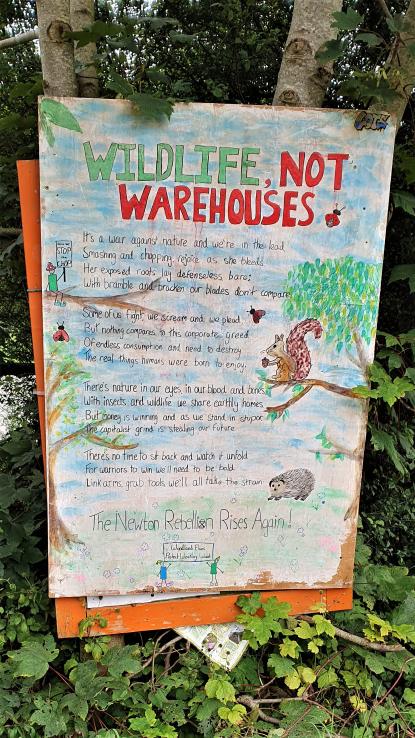 WILDLIFE, NOT
WAREHOUSES
STOP
the
CHOP
It's a war against nature and we're in the lead
Smashing and chopping, rejoice as she bleeds
Her exposed roots lay defenseless bare;
With bramble and bracken our blades don't compare
Some of us fight, we scream and we plead
But nothing compares to this corporate greed
Of endless consumption and need to destroy
The real things humans were born to enjoy.
There's nature in our eyes, in our blood and bones
With insects and wildlife we share earthly homes
But money is winning and as we stand in stupor
The capitalist grind is stealing our future
There's no time to sit back and watch it unfold
For warriors to win we'll need to be bold
Link arms, grab tools we'll all take the strain
The Newton Rebellion Rises Again!
Woodland Plan
Protect Weekley Wood